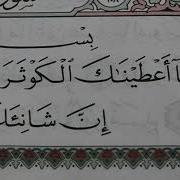 بِسْـ
ـآ أَعْطَيْنَـٰكَ ٱلْكَوْثَرَ
إِنَّ شَانِئَكَ